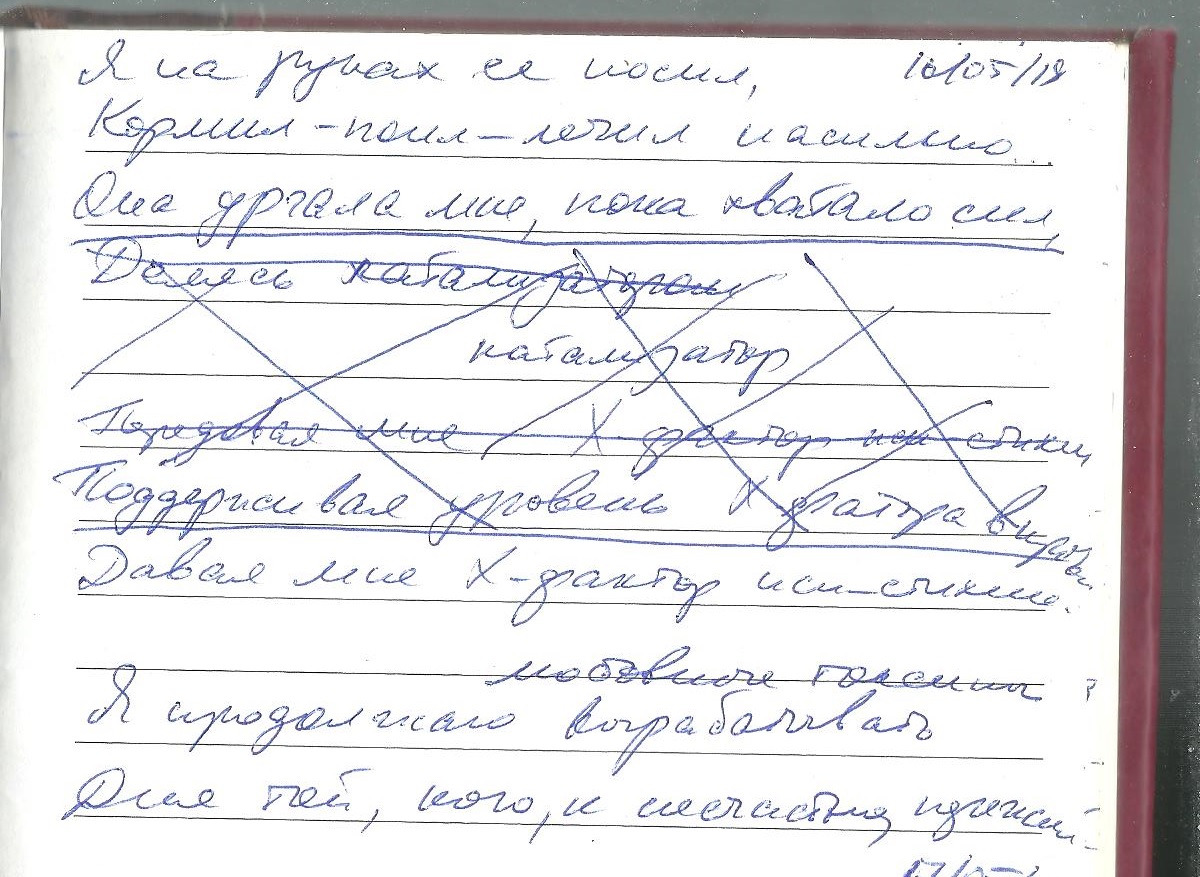 Я на руках её носил, 16/05/18
Кормил-поил-лечил насильно...
Она урчала мне, пока хватало сил,
Делясь катализатором
катализатор
Передавая мне, X-фактор кистики
Поддерживая уровень X фактора в крови
Давая мне X-фактор
любовные токсины ?
Я продолжаю вырабатывать
Для той, кого, к несчастью,